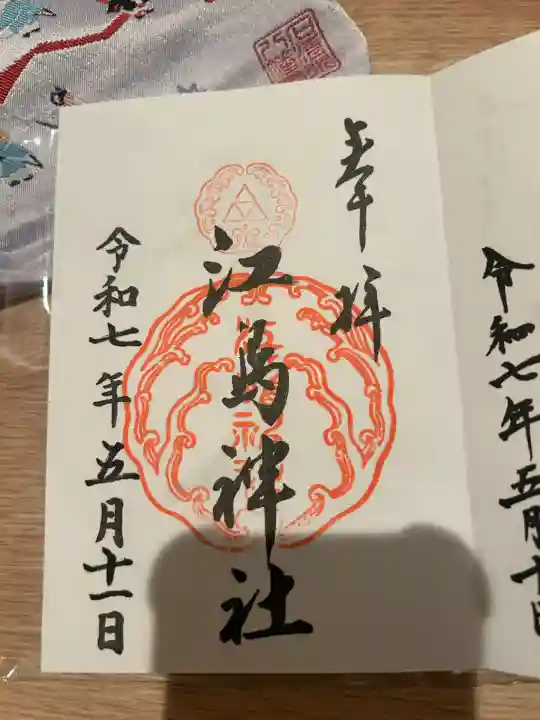 奉拝
江島神社
令和七年五月十一日
令和七年五月十日